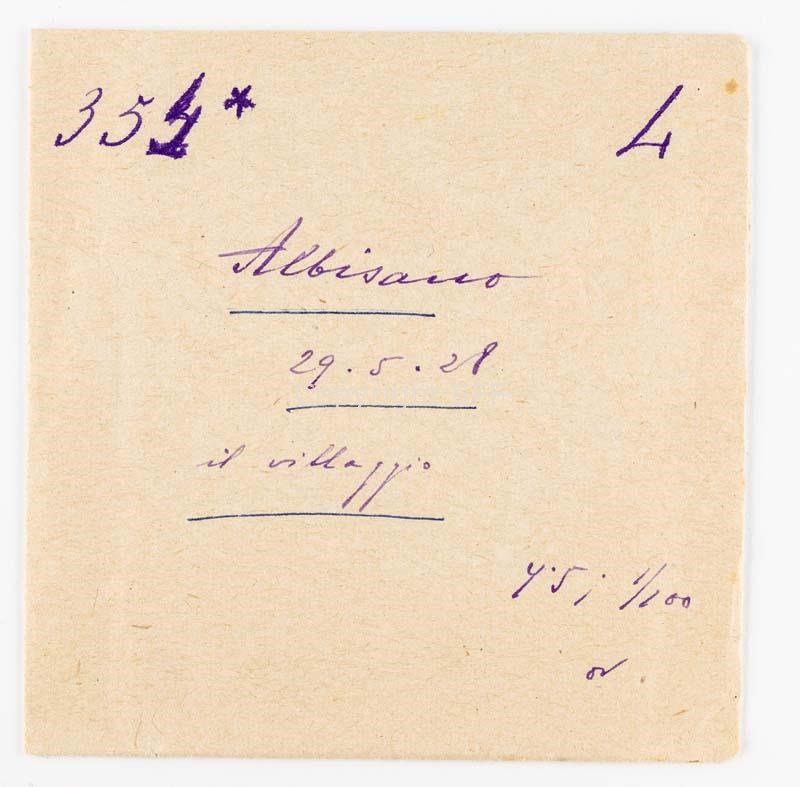 354* L
Albisano
29.5.28
il villaggio
4.5; 1/100
or